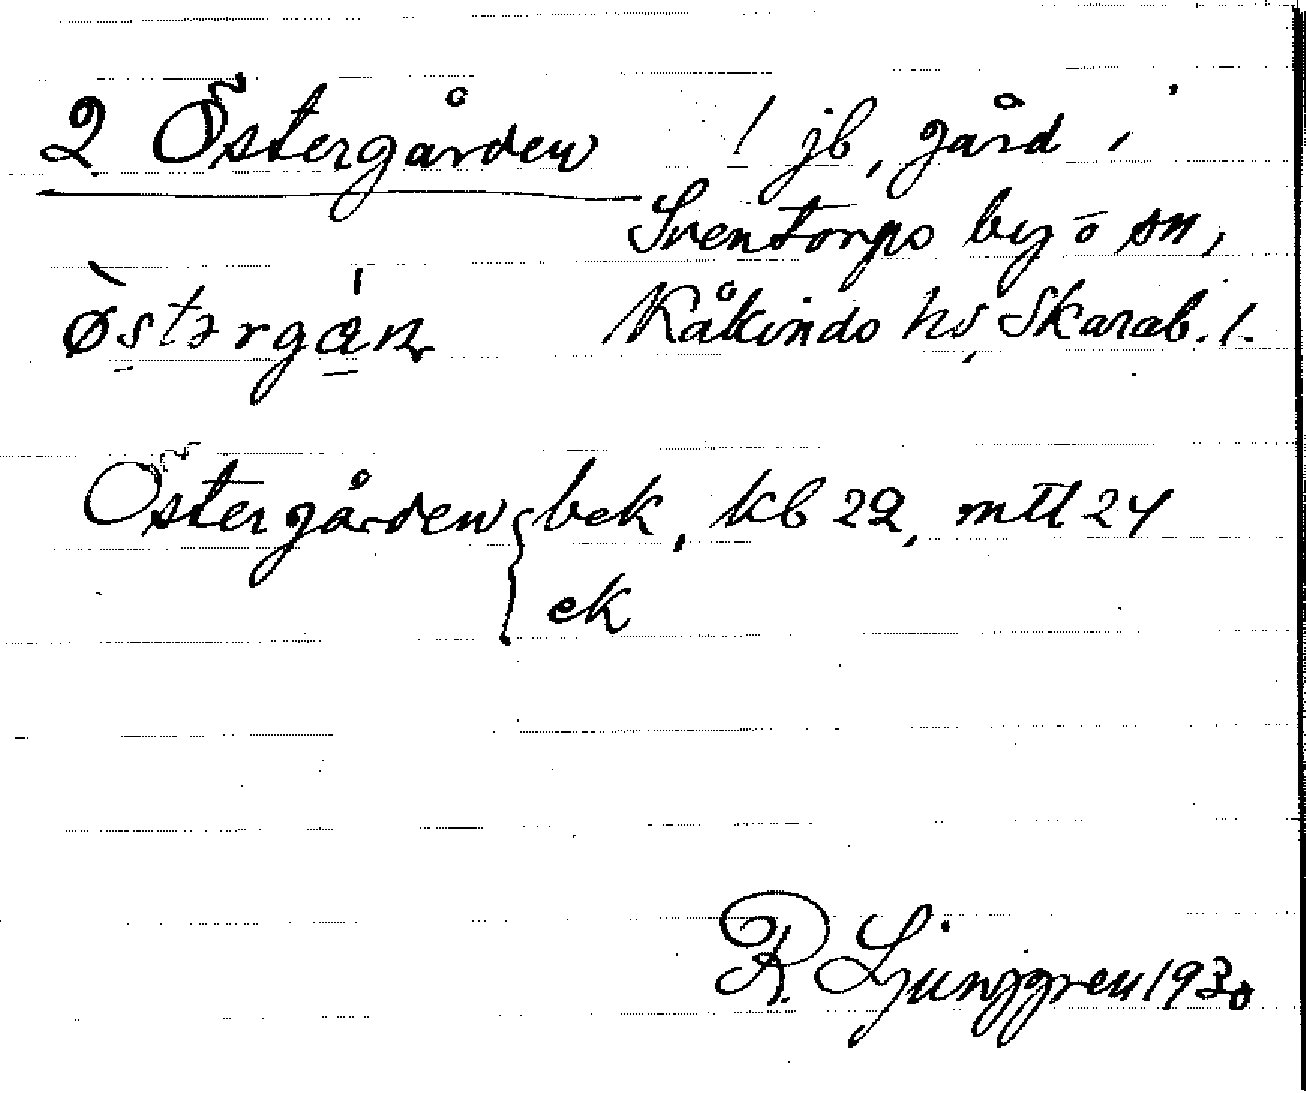 2 Östergården 1 jb, gård i
Sventorps by o sn,
Kåkinds hd, Skarab. l.
østərgạn
Östergården { bek, kb 22, mtl 24
ek
R. Ljunggren 1930